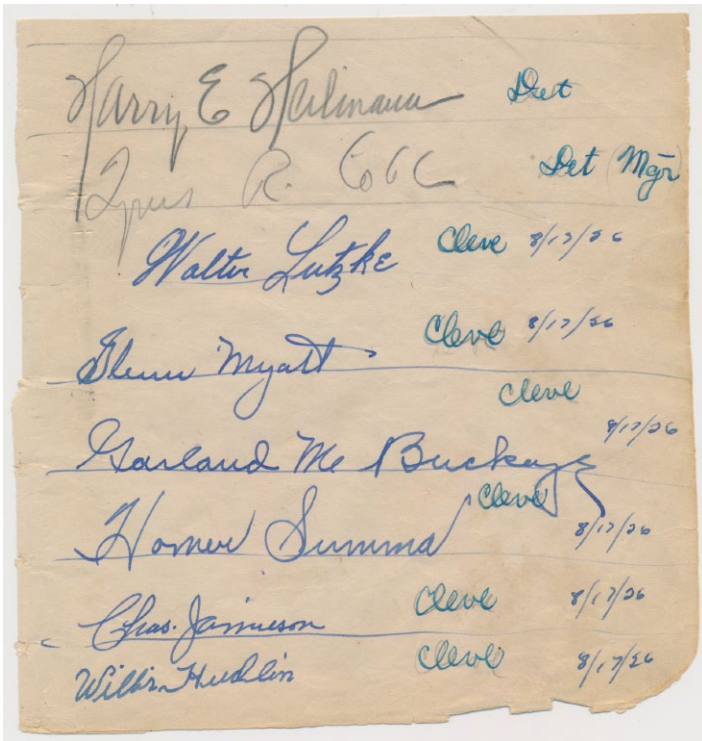 Harry E Heilmann Det
Tyrus R. Cobb Det (Mgr)
Walter Lutzke Cleve 8/17/26
Glenn Myatt Cleve 8/17/26
Cleve
Garland Mc Buckeye 8/17/26
Cleve
Homer Summa 8/17/26
Chas. Jamieson Cleve 8/17/26
Willis Hudlin Cleve 8/17/26